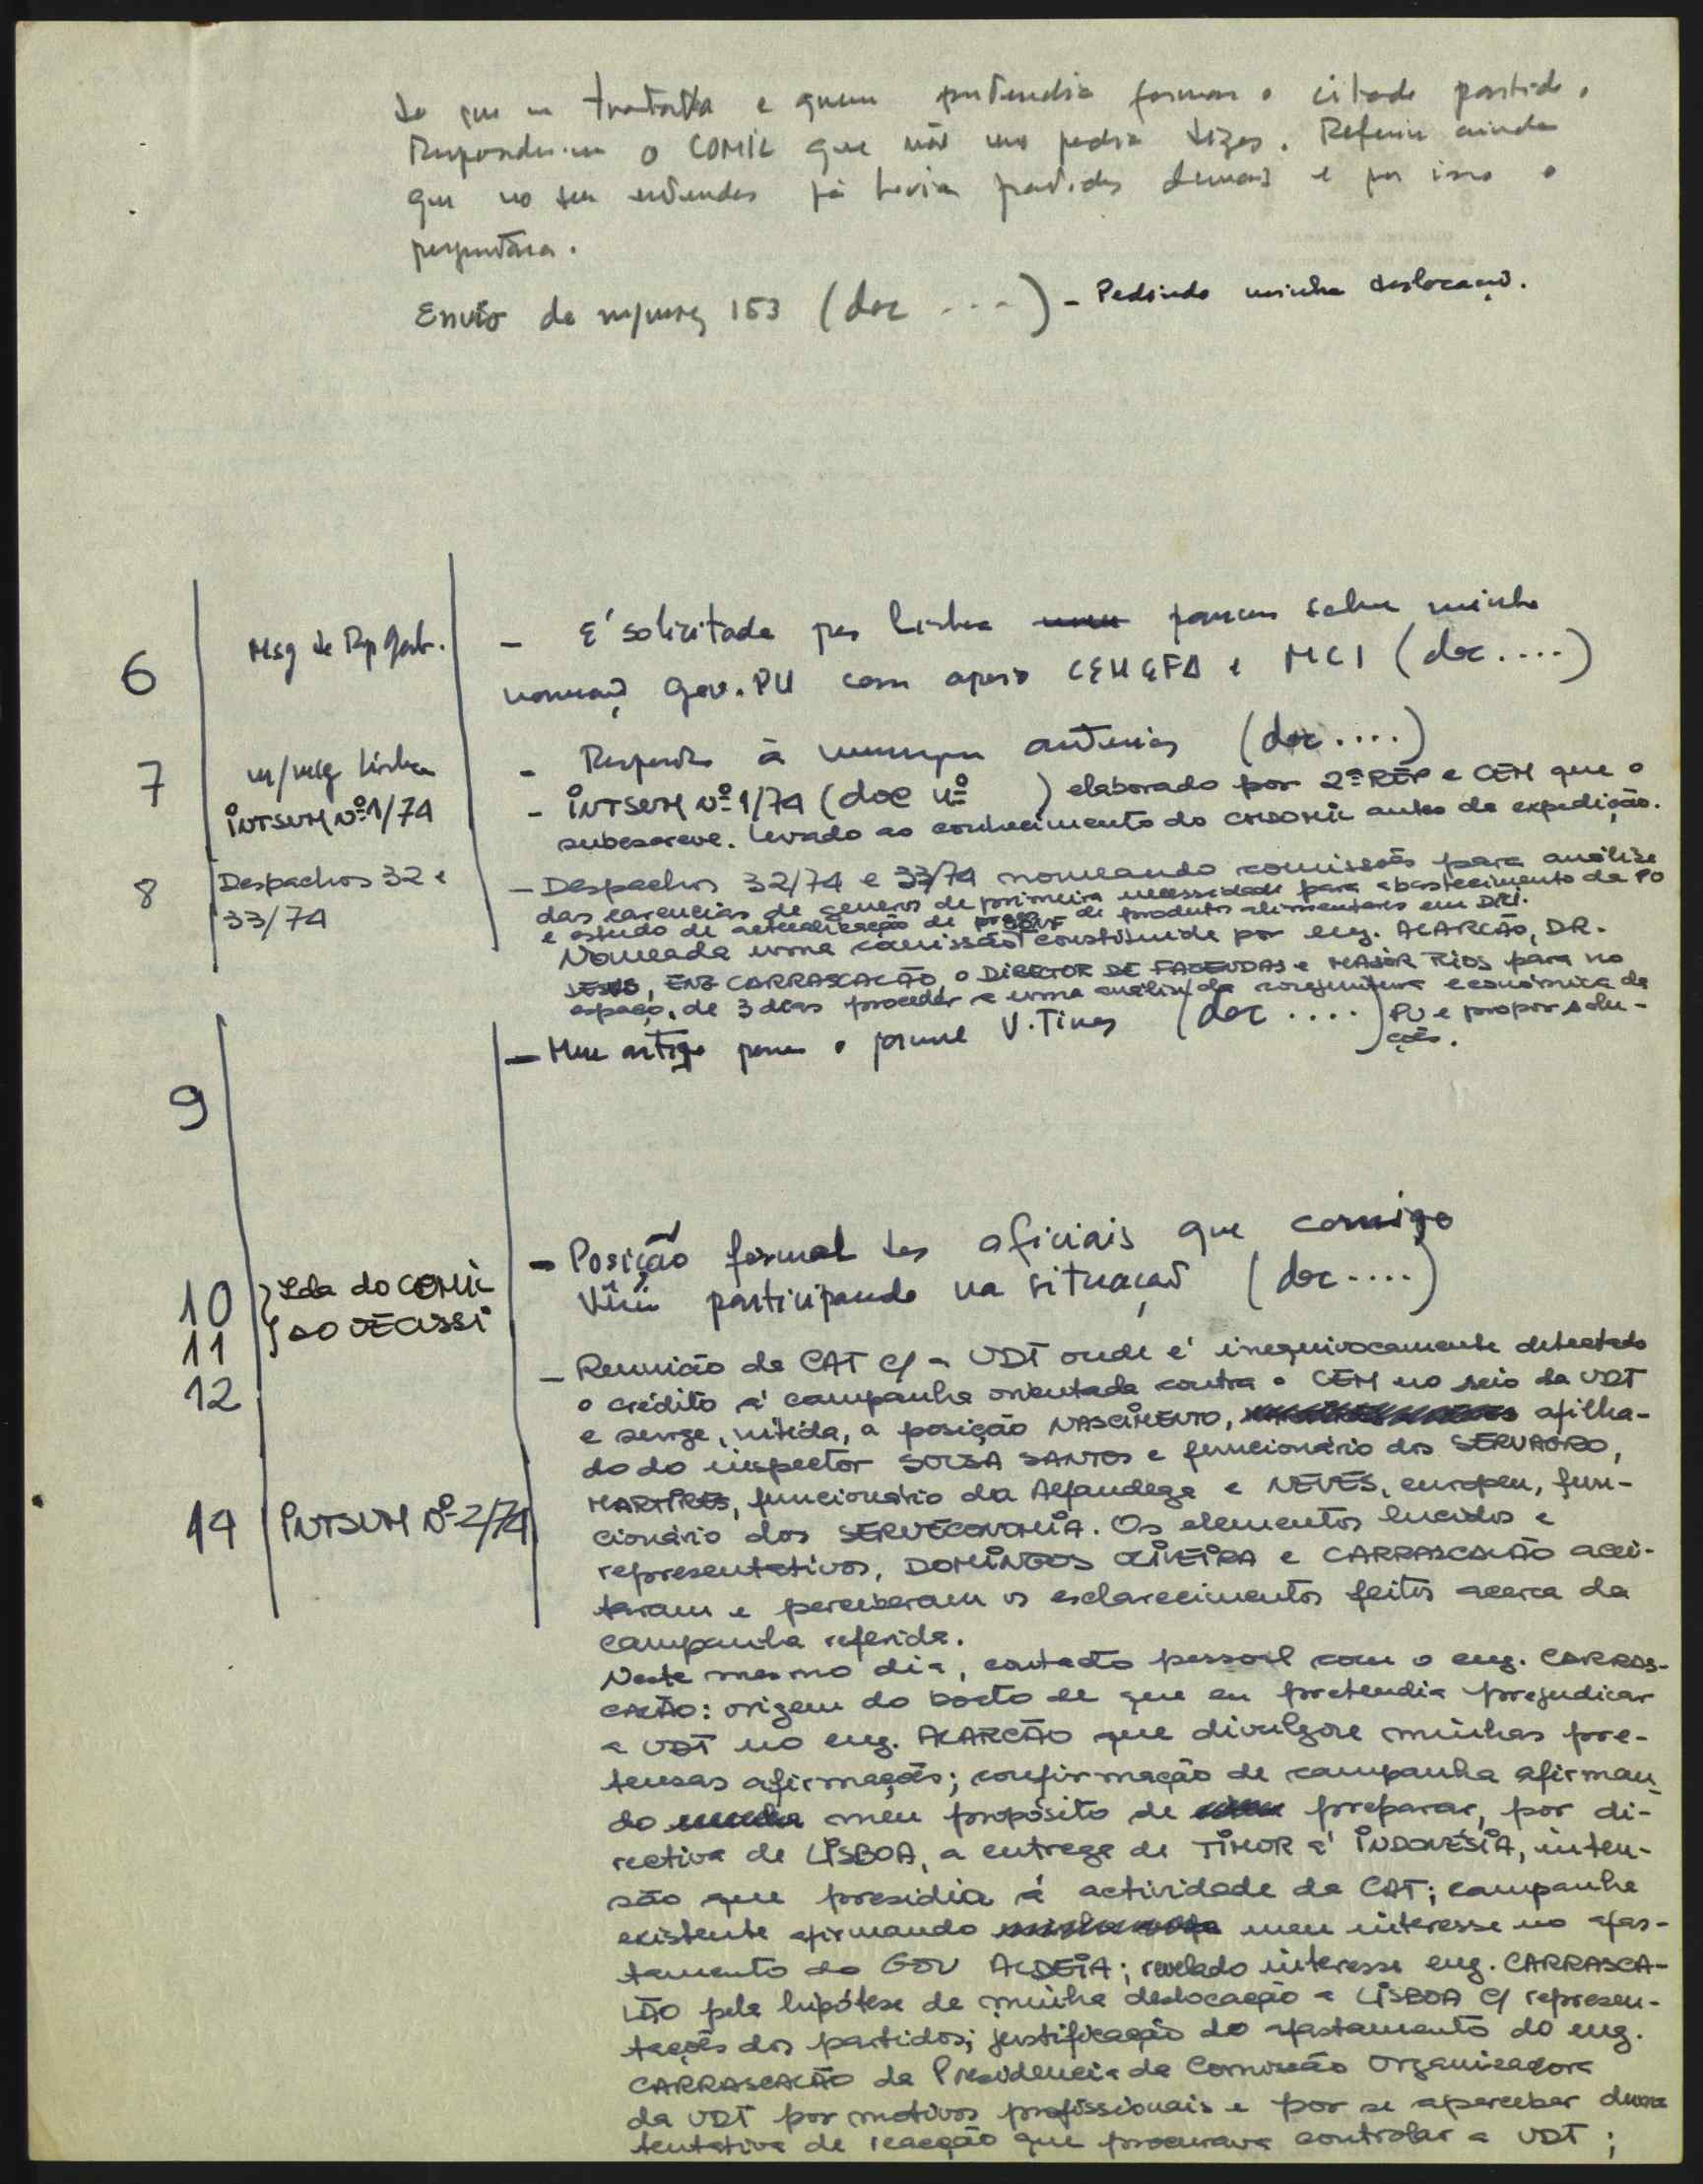 de que se tratava e quem pretendia formar o citado partido.
Respondeu-me o COMIL que não me podia dizer. Referiu ainda
que no seu entender já havia partidos demais e por isso o
perguntara.
Envio da m/msg 153 (doc ...) - Pedindo minha deslocação.
6
Msg de Rep Gab.
- É solicitada por Lisboa parecer sobre minha
nomeaç Gov. PU com apoio CEMGFA e MCI (doc ....)
7
m/msg Lisboa
INTSUM Nº 1/74
- Resposta à mensagem anterior (doc ....)
- INTSUM Nº 1/74 (doc nº ) elaborado por 2ª REP e CEM que o
subescreve. Levado ao conhecimento do CMDOMIL antes da expedição.
8
Despachos 32 e
33/74
- Despachos 32/74 e 33/74 nomeando comissões para análise
das carencias de generos de primeira necessidade para abastecimento da PO
e estudo de actualização de preços de produtos alimentares em DILI.
Nomeada uma comissão constituida por eng. ALARCÃO, DR.
ENG CARRASCALÃO, o DIRECTOR DE FAZENDAS e MAJOR RIOS para no
espaço, de 3 dias proceder a uma análise da conjuntura económica da
PU e propor solu-
ções.
- Meu artigo para o jornal V. Timor (doc ....)
9
- Posição formal dos oficiais que comigo
vêm participando na situação (doc ....)
10
11
12
Ida do COMIL
AO OECUSSI
- Reunião da CAT c/ a UDT onde é inequivocamente detectado
o crédito á campanha orientada contra o CEM no seio da UDT
e surge, nitida, a posição NASCIMENTO, afilha-
do do inspector SOUSA SANTOS e funcionário dos SERVAGRO,
MARTIRES, funcionário da Alfandega e NEVES, europeu, fun-
cionário dos SERVECONOMIA. Os elementos lucidos e
representativos, DOMINGOS OLIVEIRA e CARRASCALÃO acei-
taram e perceberam os esclarecimentos feitos acerca da
campanha referida.
14
INTSUM Nº 2/74
Neste mesmo dia, contacto pessoal com o eng. CARRAS-
CALÃO: origem do boato de que eu pretendia prejudicar
a UDT no eng. ALARCÃO que divulgou minhas pre-
tensas afirmações; confirmação de campanha afirman-
do meu propósito de preparar, por di-
rectiva de LISBOA, a entrega de TIMOR á INDONÉSIA, inten-
são que presidia á actividade da CAT; campanha
existente afirmando meu interesse no afas-
tamento do GOV ALDEIA; revelado interesse eng. CARRASCA-
LÃO pela hipótese de minha deslocação a LISBOA c/ represen-
tações dos partidos; justificação do afastamento do eng.
CARRASCALÃO da Presidencia da Comissão Organizadora
da UDT por motivos profissionais e por se aperceber duma
tentativa de reacção que procurava controlar a UDT;